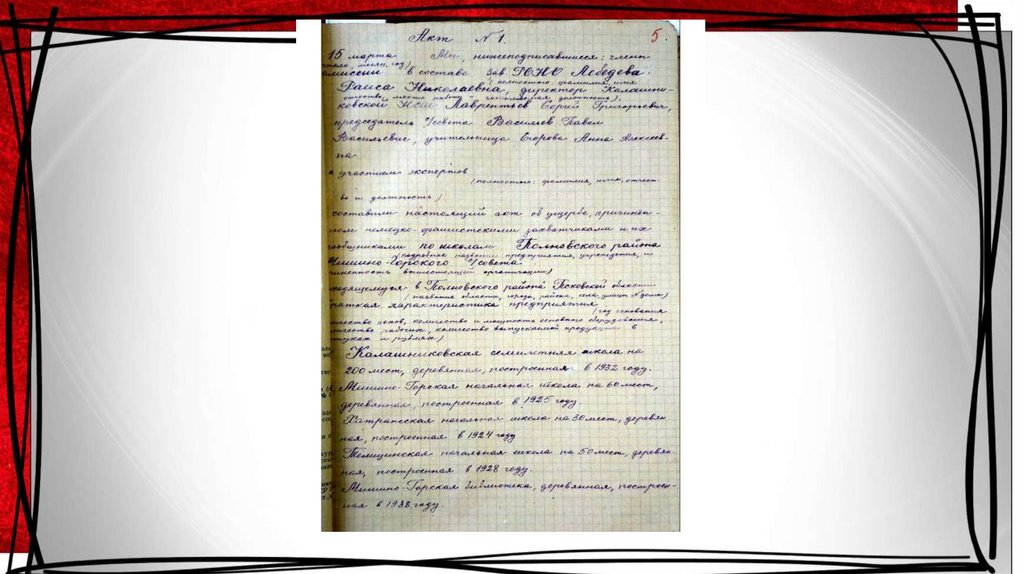 Акт N 1. 5.
15 марта Мы, нижеподписавшиеся: члены
число, месяц, год)
омиссии в составе Зав. РОНО Лебедева
(полностью: фамилия, имя
Раиса Николаевна, директор Калашни-
отчество, место работы и занимаемая должность).
ковской НСШ Лаврентьев Сергей Григорьевич,
председатель с/совета Васильев Павел
Васильевич, учительница Егорова Анна Алексеев-
на
с участием экспертов
(полностью: фамилия, имя, отчест-
во и должность)
составили настоящий акт об ущербе, причинён-
ном немецко-фашистскими захватчиками и их
сообщниками по школам Полновского района
(подробное название предприятия, учреждения, и
Мишино-Горского с/совета
чиненность вышестоящей организации)
ходящемуся в Полновского района Псковской области
(название области, города, района, села, улица № дома)
раткая характеристика предприятия
(год основания
ичество цехов, количество и мощность основного оборудования,
личество рабочих, количество выпускаемой продукции в
туках и рублях)
Калашниковская семилетняя школа на
200 мест, деревянная, построенная в 1932 году.
Мишино-Горская начальная школа на 60 мест,
деревянная, построенная в 1925 году
Хатранская начальная школа на 30 мест, деревян-
ная, построенная в 1924 году
Телицинская начальная школа на 50 мест, деревян-
ная, построенная в 1928 году.
Мишино-Горская библиотека, деревянная, построен-
ная в 1938 году.